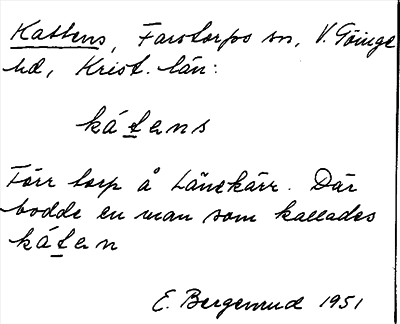 Kattens, Farstorps sn, V. Göinge
hd, Krist. län:
kátens
Förr torp å Länskärr. Där
bodde en man som kallades
káten
E. Bergenrud 1951